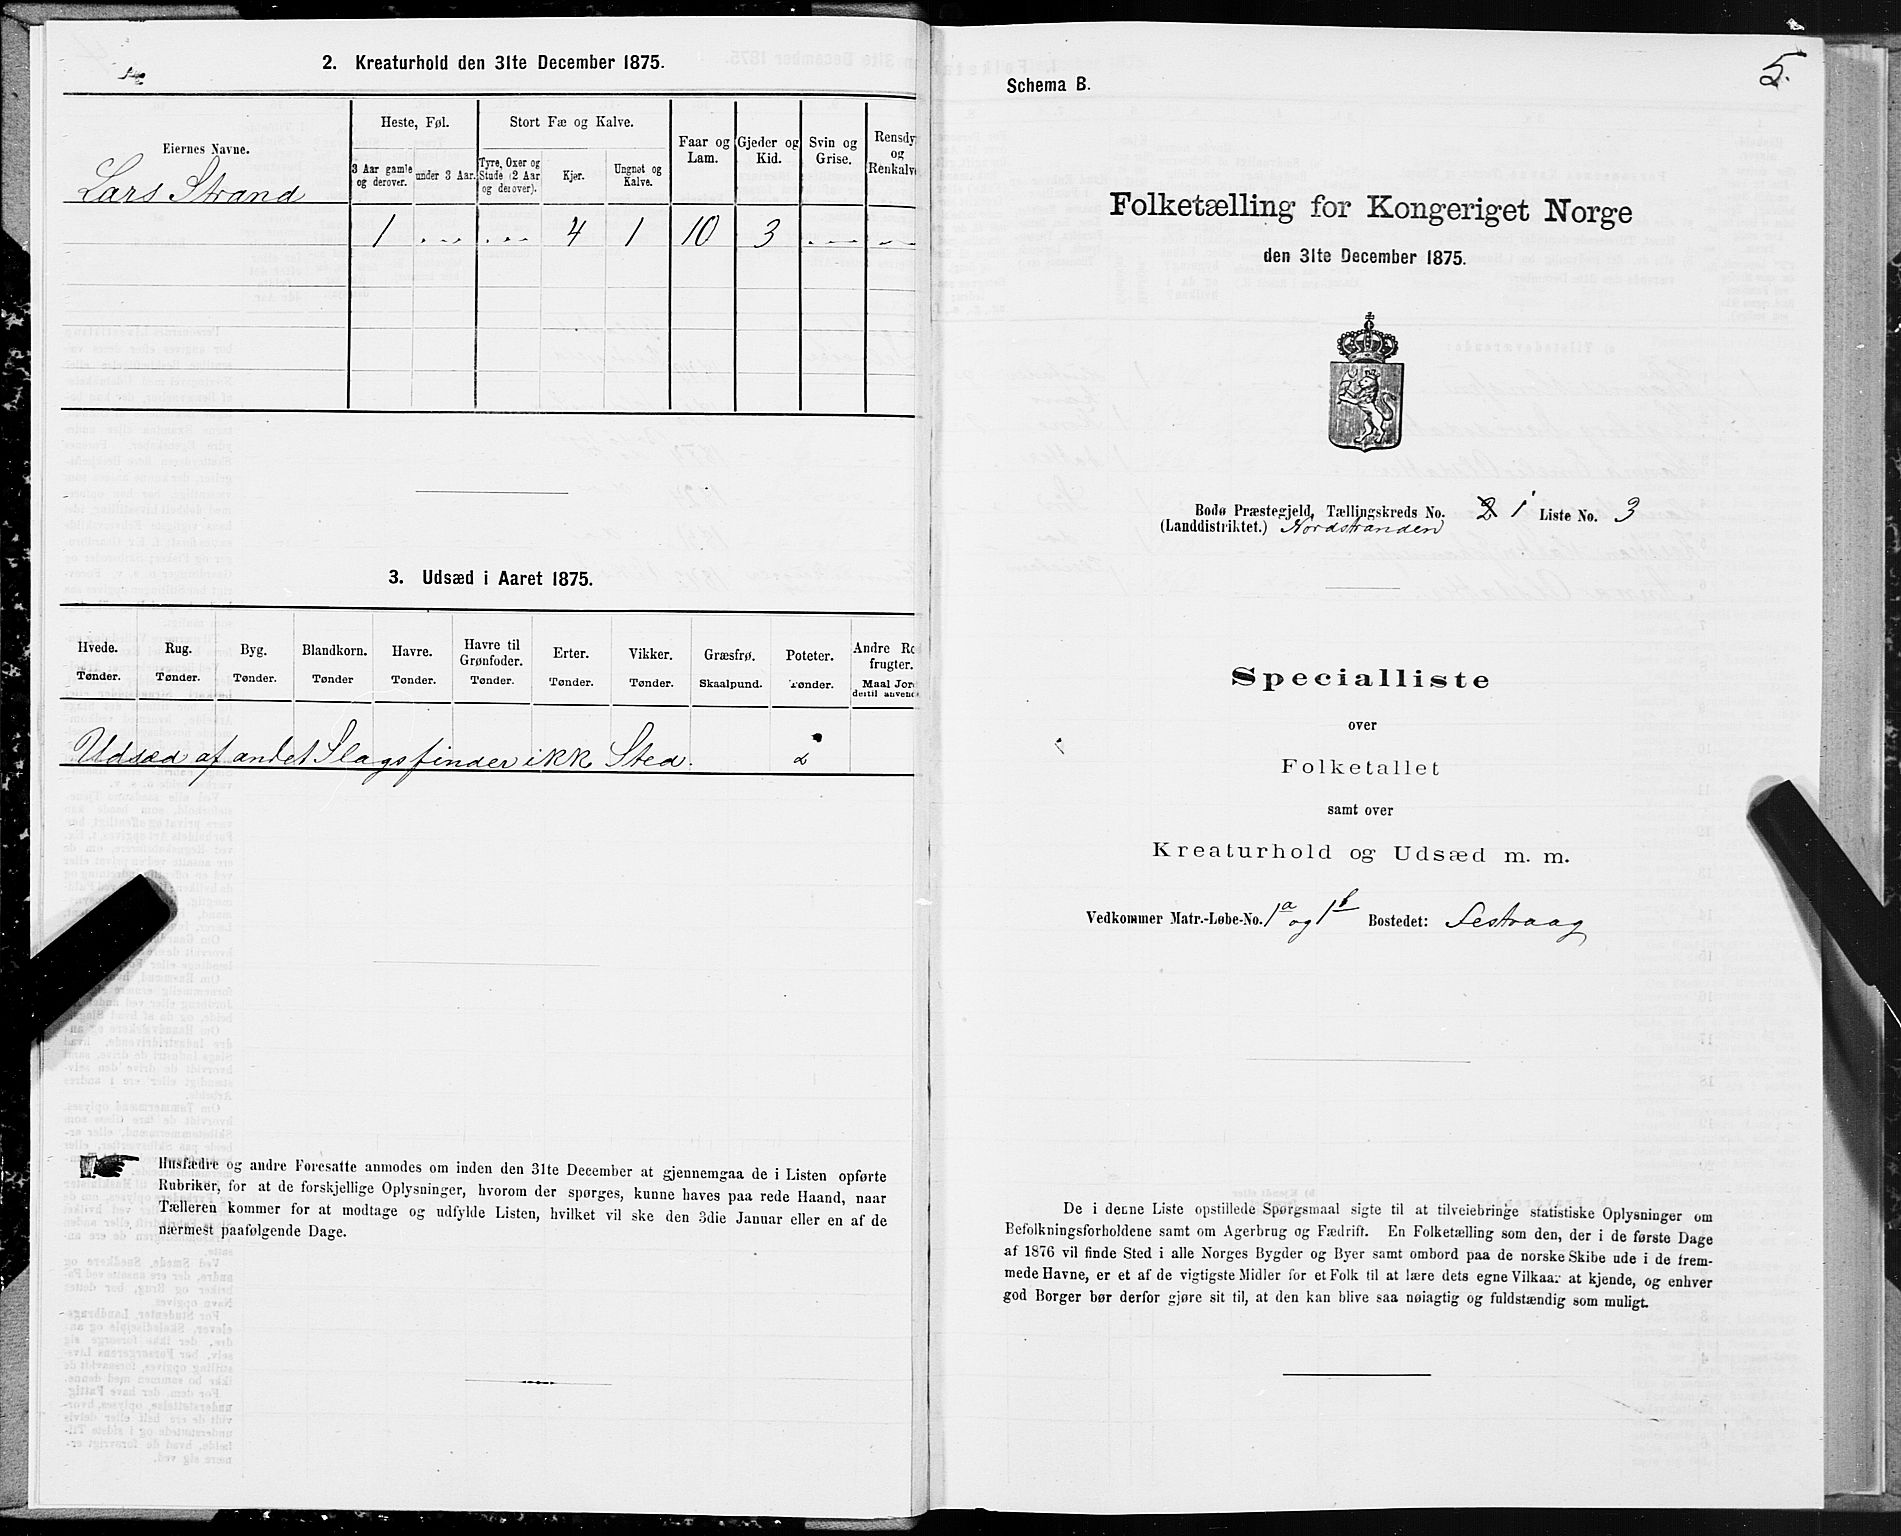 2. Kreaturhold den 31te December 1875.
Eiernes Navne.
Heste, Føl.
Stort Fæ og Kalve.
Faar og Lam.
Gjeder og Kid.
Svin og Grise.
Rensdy
og
Renkalv
3 Aar gamle og derover.
under 3 Aar.
Tyre, Oxer og Stude (2 Aar og derover).
Kjør.
Ungnøt og Kalve.
Lars Strand
1 „ „ 4 1 10 3 „ „
3. Udsæd i Aaret 1875.
Hvede. Rug. Byg. Blandkorn. Havre. Havre til Grønfoder. Erter. Vikker. Græsfrø. Poteter. Andre Ro frugter.
Tønder. Tønder. Tønder. Tønder Tønder. Tønder. Tønder. Tønder. Skaalpund. Tønder. Maal Jor dertil anvend
Udsæd af andet Slags finder ikk Sted. 2
Husfædre og andre Foresatte anmodes om inden den 31te December at gjennemgaa de i Listen opførte
Rubriker, for at de forskjellige Oplysninger, hvorom der spørges, kunne haves paa rede Haand, naar
Tælleren kommer for at modtage og udfylde Listen, hvilket vil ske den 3die Januar eller en af de
nærmest paafølgende Dage.
5.
Schema B.
Folketælling for Kongeriget Norge
den 31te December 1875.
Bodø Præstegjeld, Tællingskreds No. 2 1 Liste No. 3
(Landdistriktet.) Nordstranden
Specialliste
over
Folketallet
samt over
Kreaturhold og Udsæd m. m.
Vedkommer Matr.-Løbe-No. 1a og 1b Bostedet: Festvaag
De i denne Liste opstillede Spørgsmaal sigte til at tilveiebringe statistiske Oplysninger om
Befolkningsforholdene samt om Agerbrug og Fædrift. En Folketælling som den, der i de første Dage
af 1876 vil finde Sted i alle Norges Bygder og Byer samt ombord paa de norske Skibe ude i de frem-
mede Havne, er et af de vigtigste Midler for et Folk til at lære dets egne Vilkaar at kjende, og enhver
god Borger bør derfor gjøre sit til, at den kan blive saa nøiagtig og fuldstændig som muligt.